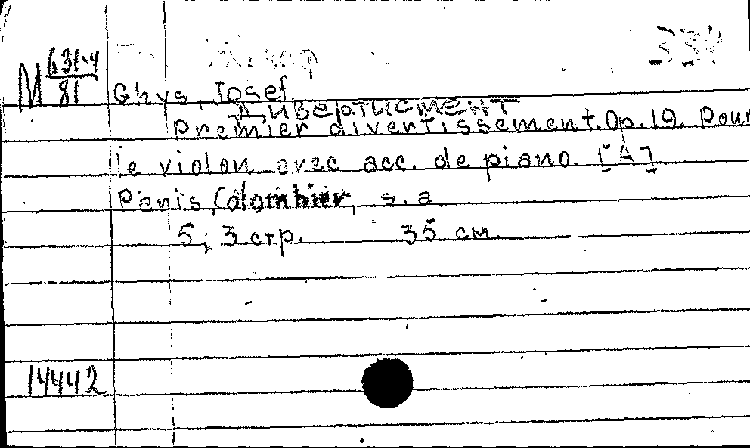 М 631-4
81
Ghys, Iosef
Дивертисмент
Premier divertissement. Op. 19. Pour
le violon avec acc. de piano. [A]
Paris, Colombier, s.a.
5; 3 стр. 35 см.
14442